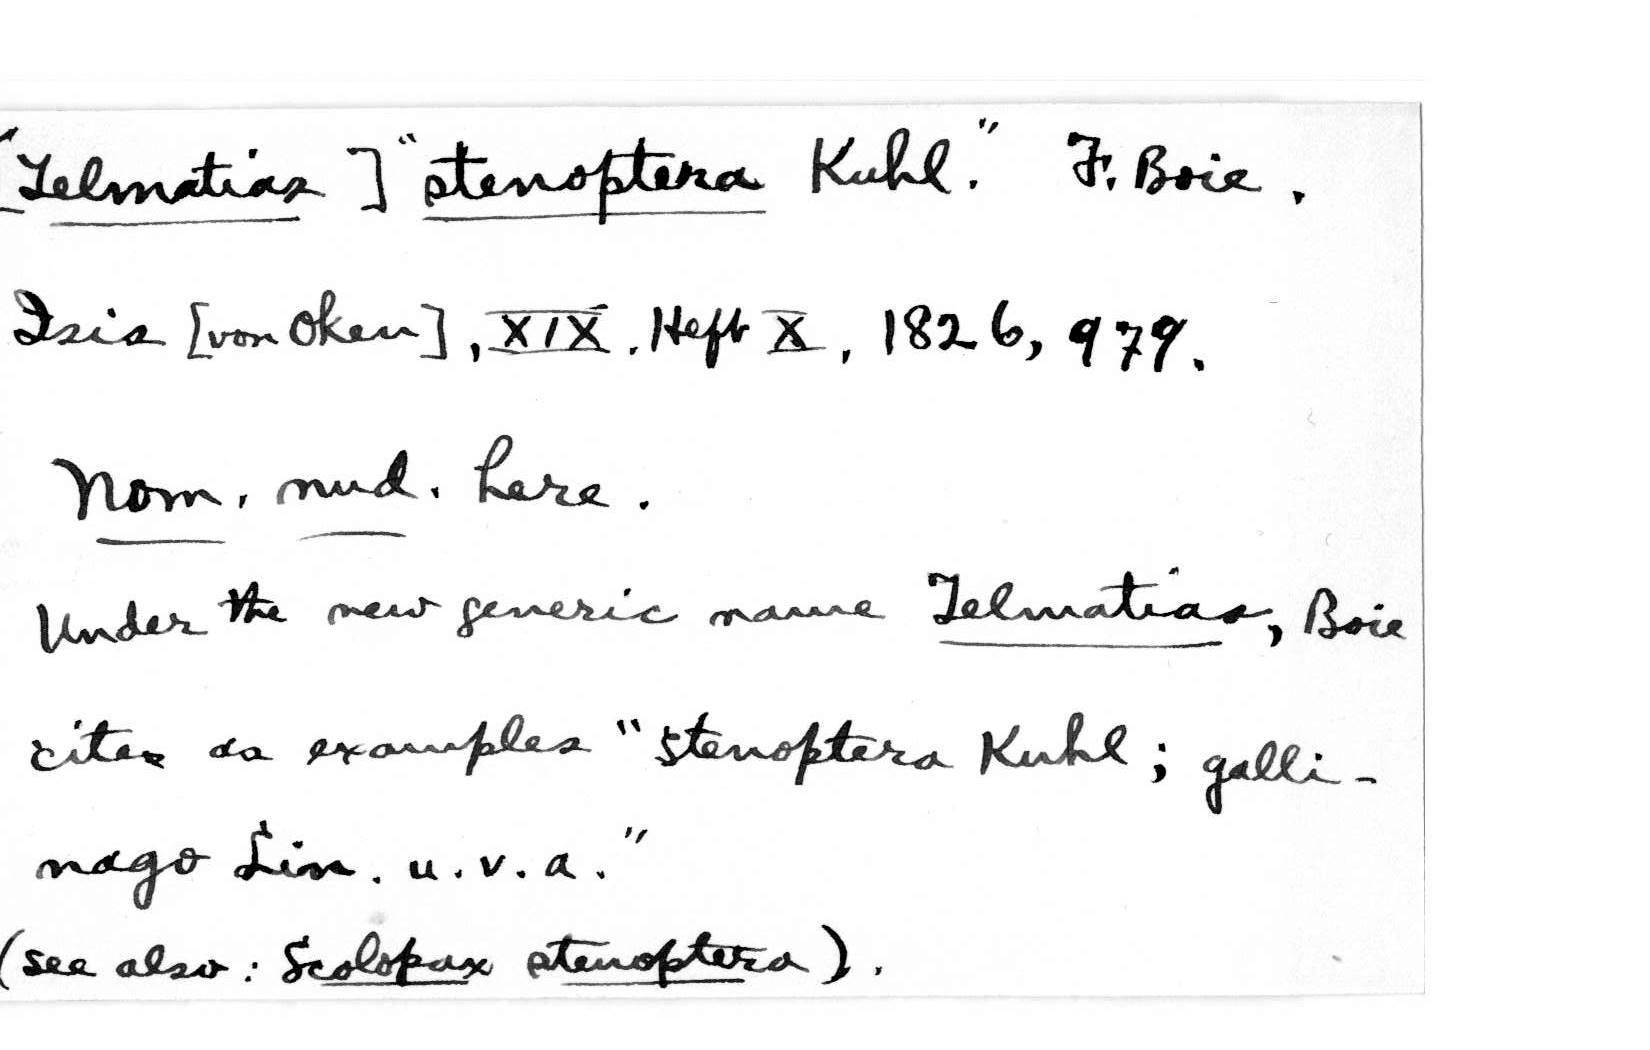 [Telmatias] "stenoptera Kuhl." F. Boie.
Isis [von Oken], XIX. Heft X, 1826, 979.
Nom. nud. here.
Under the new generic name Telmatias, Boie
cites as examples "stenoptera Kuhl; galli-
nago Lin. u.v.a."
(see also: Scolopax stenoptera).